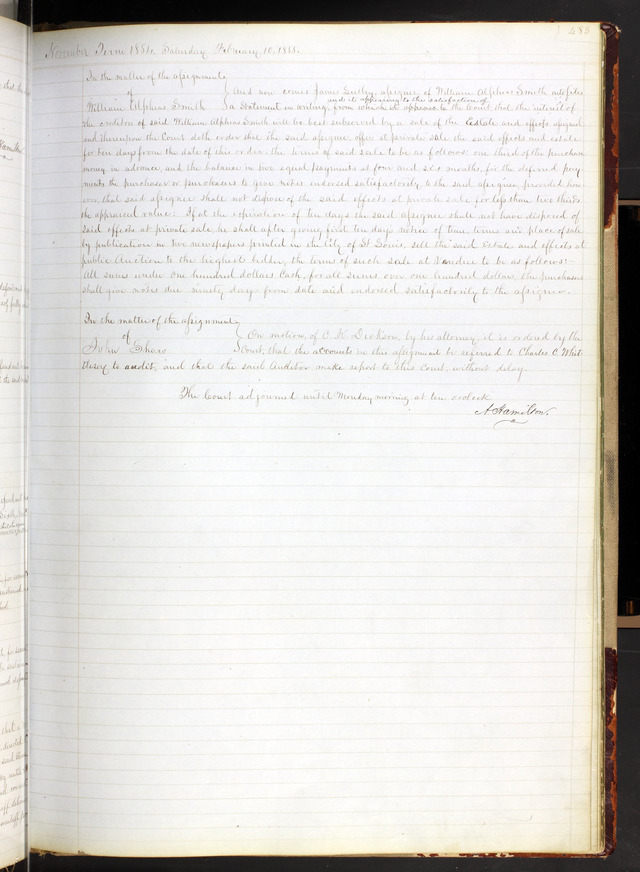 485
November Term 1854, Saturday February, 10, 1855.
In the matter of the assignment
of
William Alpheus Smith
And now comes James Smith, assignee of William Alpheus Smith and files
and it appearing to the satisfaction of
a Statement in writing, from which it appears to the Court that the interest of
the creditors of said William Alpheus Smith will be best subserved by a sale of the Estate and effects assigned
and thereupon the Court doth order that the said assignee, offer at private sale the said effects and estate
for ten days from the date of this order, the terms of said sale to be as follows: one third of the purchase
money in advance, and the balance in two equal payments at four and six months, for the deferred pay-
ments the purchaser or purchasers to give notes endorsed satisfactorily to the said assignee, provided how-
ever, that said assignee shall not dispose of the said effects at private sale for less than two thirds
the appraised value: If at the expiration of ten days the said assignee shall not have disposed of
said effects at private sale, he shall after giving first ten days notice of time, terms and place of sale
by publication in two newspapers printed in the City of St Louis, sell the said Estate and effects at
public Auction to the highest bidder, the terms of such sale at Vendue to be as follows:
All sums under one hundred dollars Cash, for all sums over one hundred dollars, the purchasers
shall give notes due ninety days from date and endorsed satisfactorily to the assignee.
In the matter of the assignment
of
John
On motion, of C. K. Dickson, by his attorney, it is ordered by the
Court, that the accounts in this assignment be referred to Charles C. Whit-
tlesey to audit, and that the said Auditor make report to this Court, without delay.
The Court adjourned until Monday morning at ten o'clock
A. Hamilton.